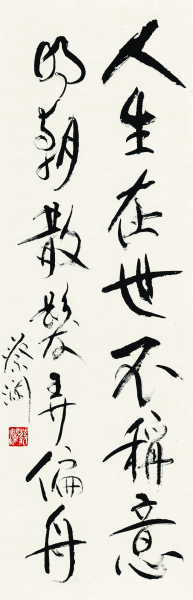 人生在世不稱意
明朝散髮弄偏舟
蔡瀾